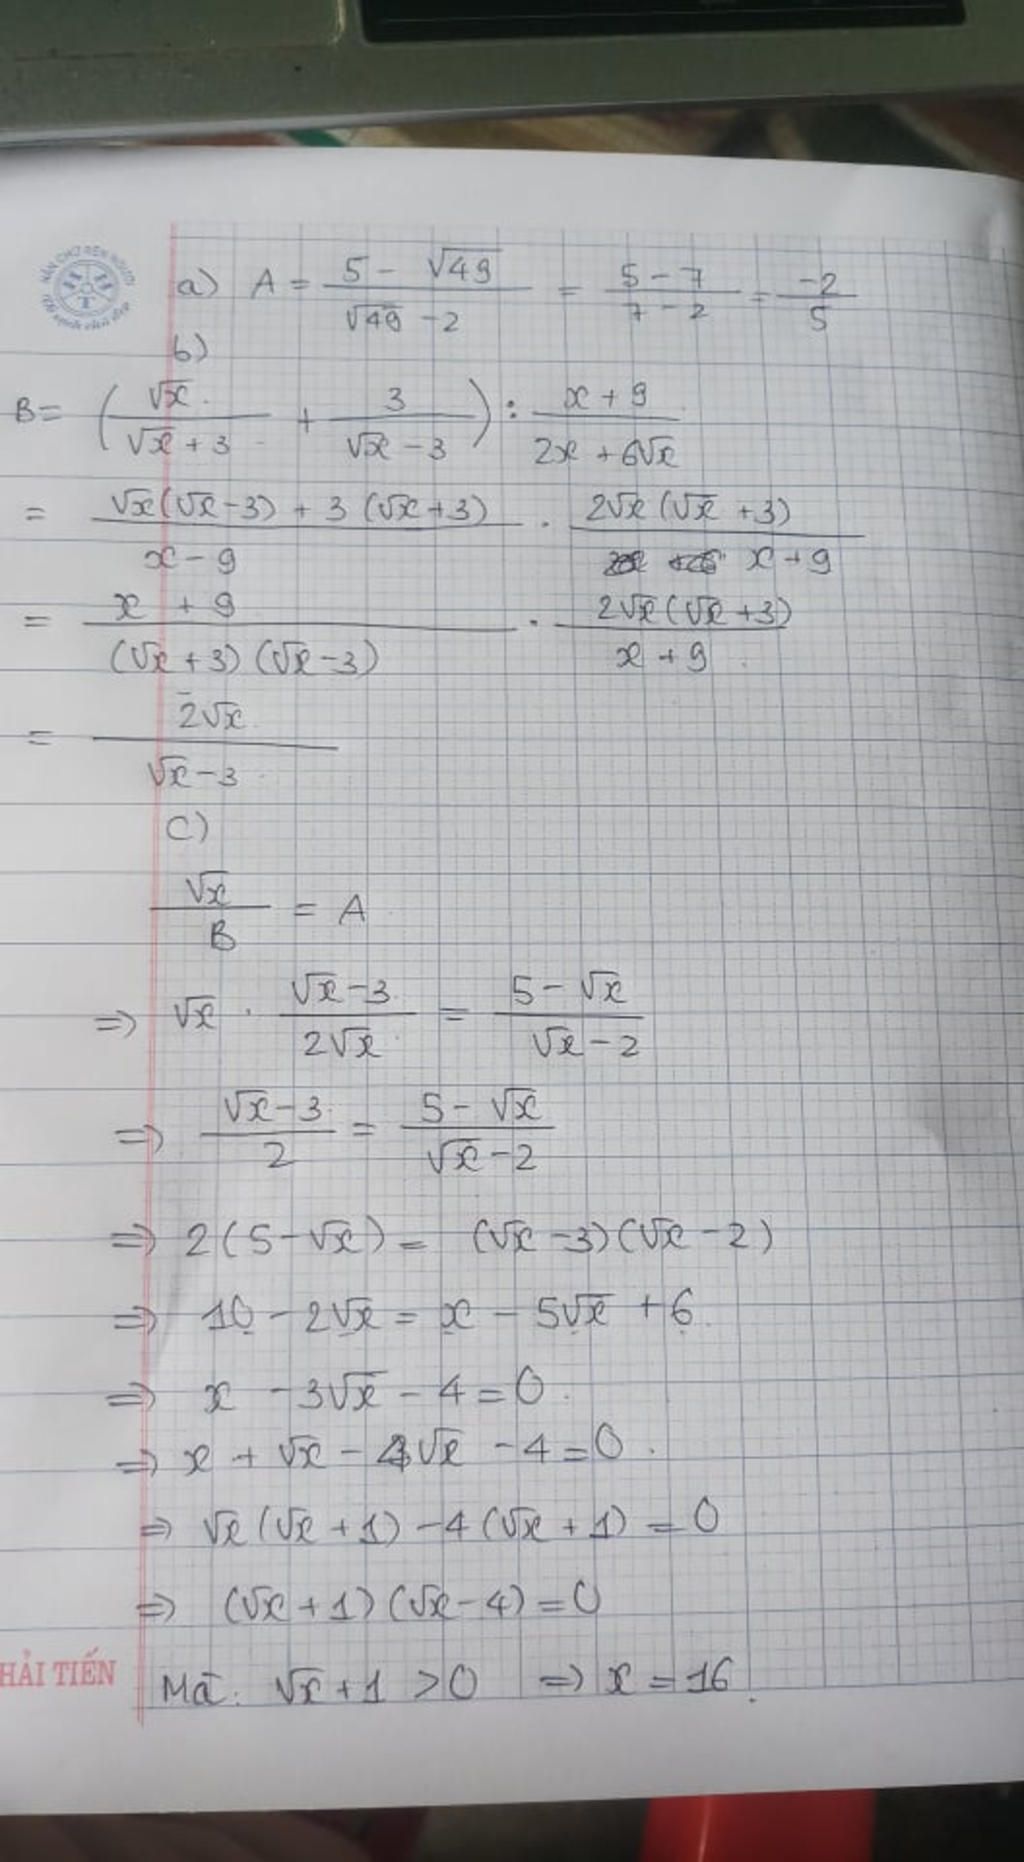 NÂN CHỮ RÈN NGƯỜI
a) A = (5 - √49)/(√49 - 2) = (5 - 7)/(7 - 2) = -2/5
b)
B = (√x/(√x + 3) + 3/(√x - 3)) : (x + 9)/(2x + 6√x)
= (√x(√x - 3) + 3(√x + 3))/(x - 9) · 2√x(√x + 3)/(x + 9)
= (x + 9)/((√x + 3)(√x - 3)) · 2√x(√x + 3)/(x + 9)
= 2√x/(√x - 3)
C)
√x/B = A
=> √x · (√x - 3)/(2√x) = (5 - √x)/(√x - 2)
=> (√x - 3)/2 = (5 - √x)/(√x - 2)
=> 2(5 - √x) = (√x - 3)(√x - 2)
=> 10 - 2√x = x - 5√x + 6
=> x - 3√x - 4 = 0.
=> x + √x - 4√x - 4 = 0.
=> √x(√x + 1) - 4(√x + 1) = 0
=> (√x + 1)(√x - 4) = 0
HẢI TIẾN
Mà: √x + 1 > 0 => x = 16.